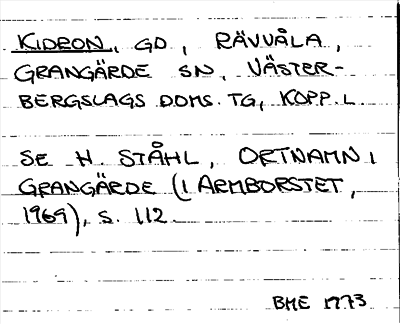 KIDRON, GD, RÄVVÅLA,
GRANGÄRDE SN, VÄSTER-
BERGSLAGS DOMS. TG, KOPP. L.
SE H. STÅHL, ORTNAMN I
GRANGÄRDE (I ARMBORSTET,
1969), S. 112.
BME 1973